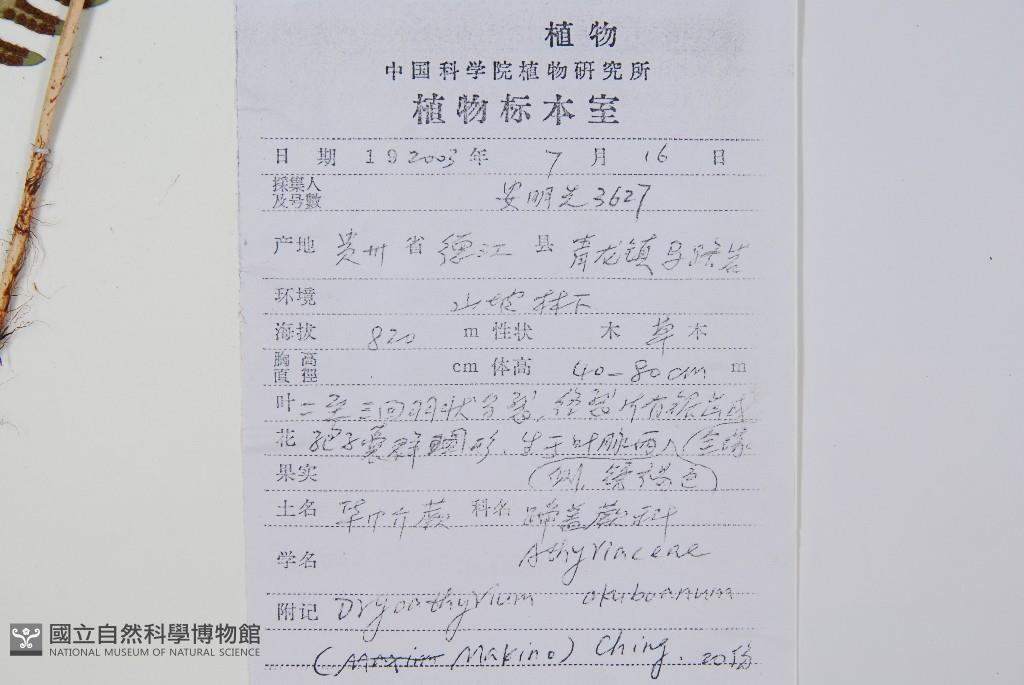 植物
中国科学院植物研究所
植物标本室
日期 19 2003年 7月 16日
採集人
及号數 安明先 3627
产地 贵州省 德江县 青龙镇
环境 山坡林下
海拔 820 m 性状 木 草本
胸高
直徑 cm 体高 40-80cm m
叶 二至三回羽状分裂,
花 孢子囊群圆形,生于叶脉两
果实
土名 华介蕨 科名 蹄盖蕨科
学名 Athyriaceae
附记 Dryoathyrium okuboanum
(Makino) Ching. 20份
國立自然科學博物館
NATIONAL MUSEUM OF NATURAL SCIENCE